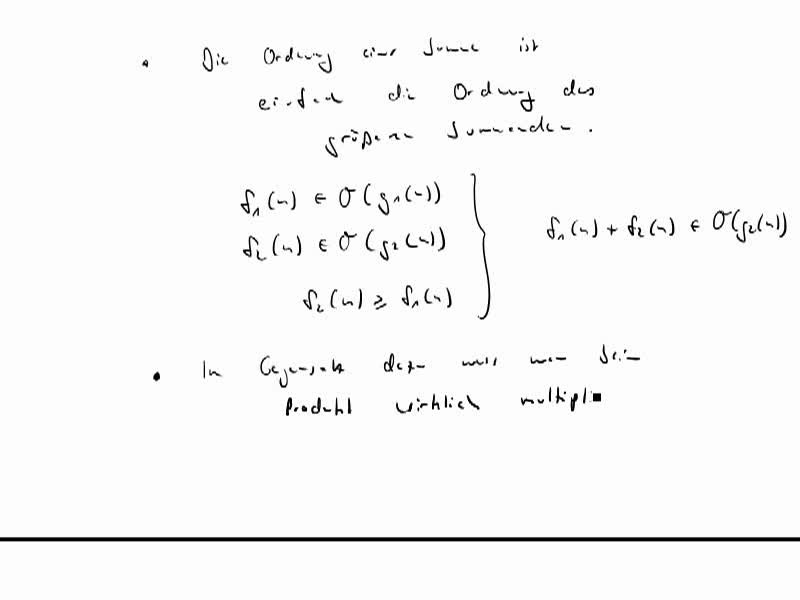 • Die Ordnung einer Summe ist
einfach die Ordnung des
größeren Summanden.
f₁(n) ∈ O(g₁(n))
f₂(n) ∈ O(g₂(n))
f₂(n) ≥ f₁(n)
} f₁(n) + f₂(n) ∈ O(g₂(n))
• Im Gegensatz dazu muss man beim
Produkt wirklich multipli